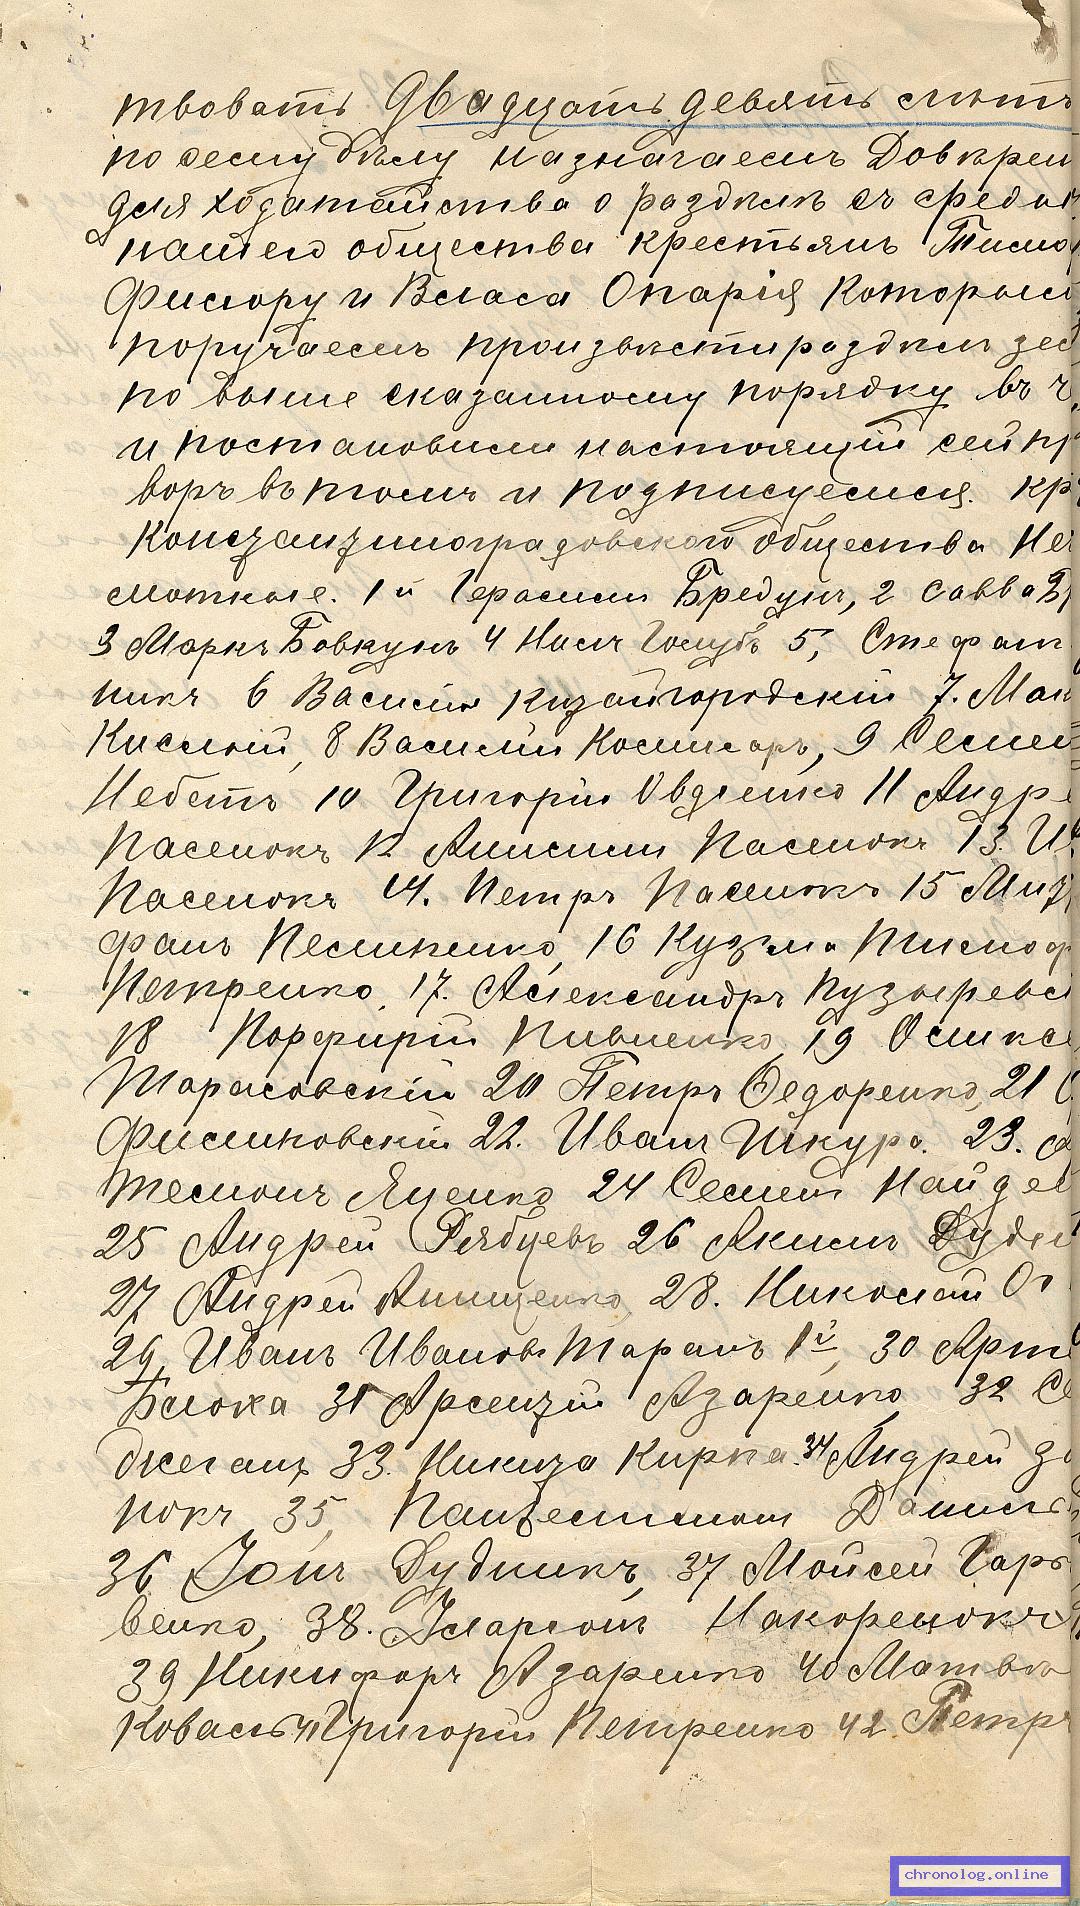 твовать Двадцать девять лѣтъ
по сему дѣлу назначаемъ Довѣрен
для ходатайства о раздѣлѣ съ среды
нашего общества крестьянъ Тимо
Фимору и Власа Опарія Которым
поручаемъ произвести раздѣлъ зем
по выше сказанному порядку въ ч
и постановили настоящій сей пр
воръ въ томъ и подписуемся. кр
Констант​иноградовского общества Не
смотные. 1й Герасимъ Бредунъ, 2 Савва
3 Маркъ Бовкунъ 4 Наумъ Голубъ 5, Стефанъ
никъ 6 Василій Кизайгородскій 7. Мак
Кислый, 8 Василій Комисаръ, 9 Семен
Небетъ 10 Григорій Овдіенко 11 Андре
Пасенокъ 12 Анисим Пасенокъ 13. И
Пасенокъ 14. Петръ Пасенокъ 15 Мит
фанъ Песликенко, 16 Кузма Тимоф
Петренко, 17. Александръ Пузырев
18 Порфирій Пивненко, 19 Оликсе
Тарасовскій 20 Петръ Федоренко, 21
Филиповскій 22. Иванъ Шкура. 23. Ф
темонъ Яценко 24 Семен Найде
25 Андрей Рябцевъ 26 Акимъ Дудн
27 Андрей Анищенко, 28. Николай О
29, Иванъ Ивановъ Таранъ 1й, 30 Арт
Блоха 31 Арсентій Азаренко, 32 Се
джеганъ 33. Никита Кирпа. 34 Андрей З
нокъ 35, Пантелимон Данил
36 Іонъ Дудникъ, 37 Мойсей Гарь
венко, 38. Іларіонъ Накоренокъ
39 Никифоръ Азаренко 40 Матвѣй
Коваль 41 Григорій Петренко 42 Петръ
chronolog.online